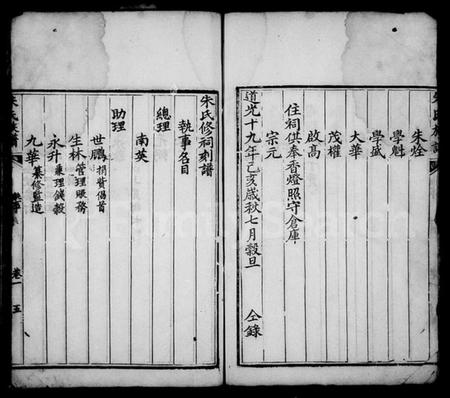 朱烇
學魁
學盛
大華
茂權
啟高
住祠供奉香燈照守倉庫
宗元
道光十九年己亥歲秋七月穀旦 仝錄
朱氏修祠刻譜
執事名目
總理
南英
助理
世鵬 捐貲倡首
生林 管理賬務
永升 兼理錢穀
九華 纂修監造
朱氏族譜
卷一 五
FamilySearch